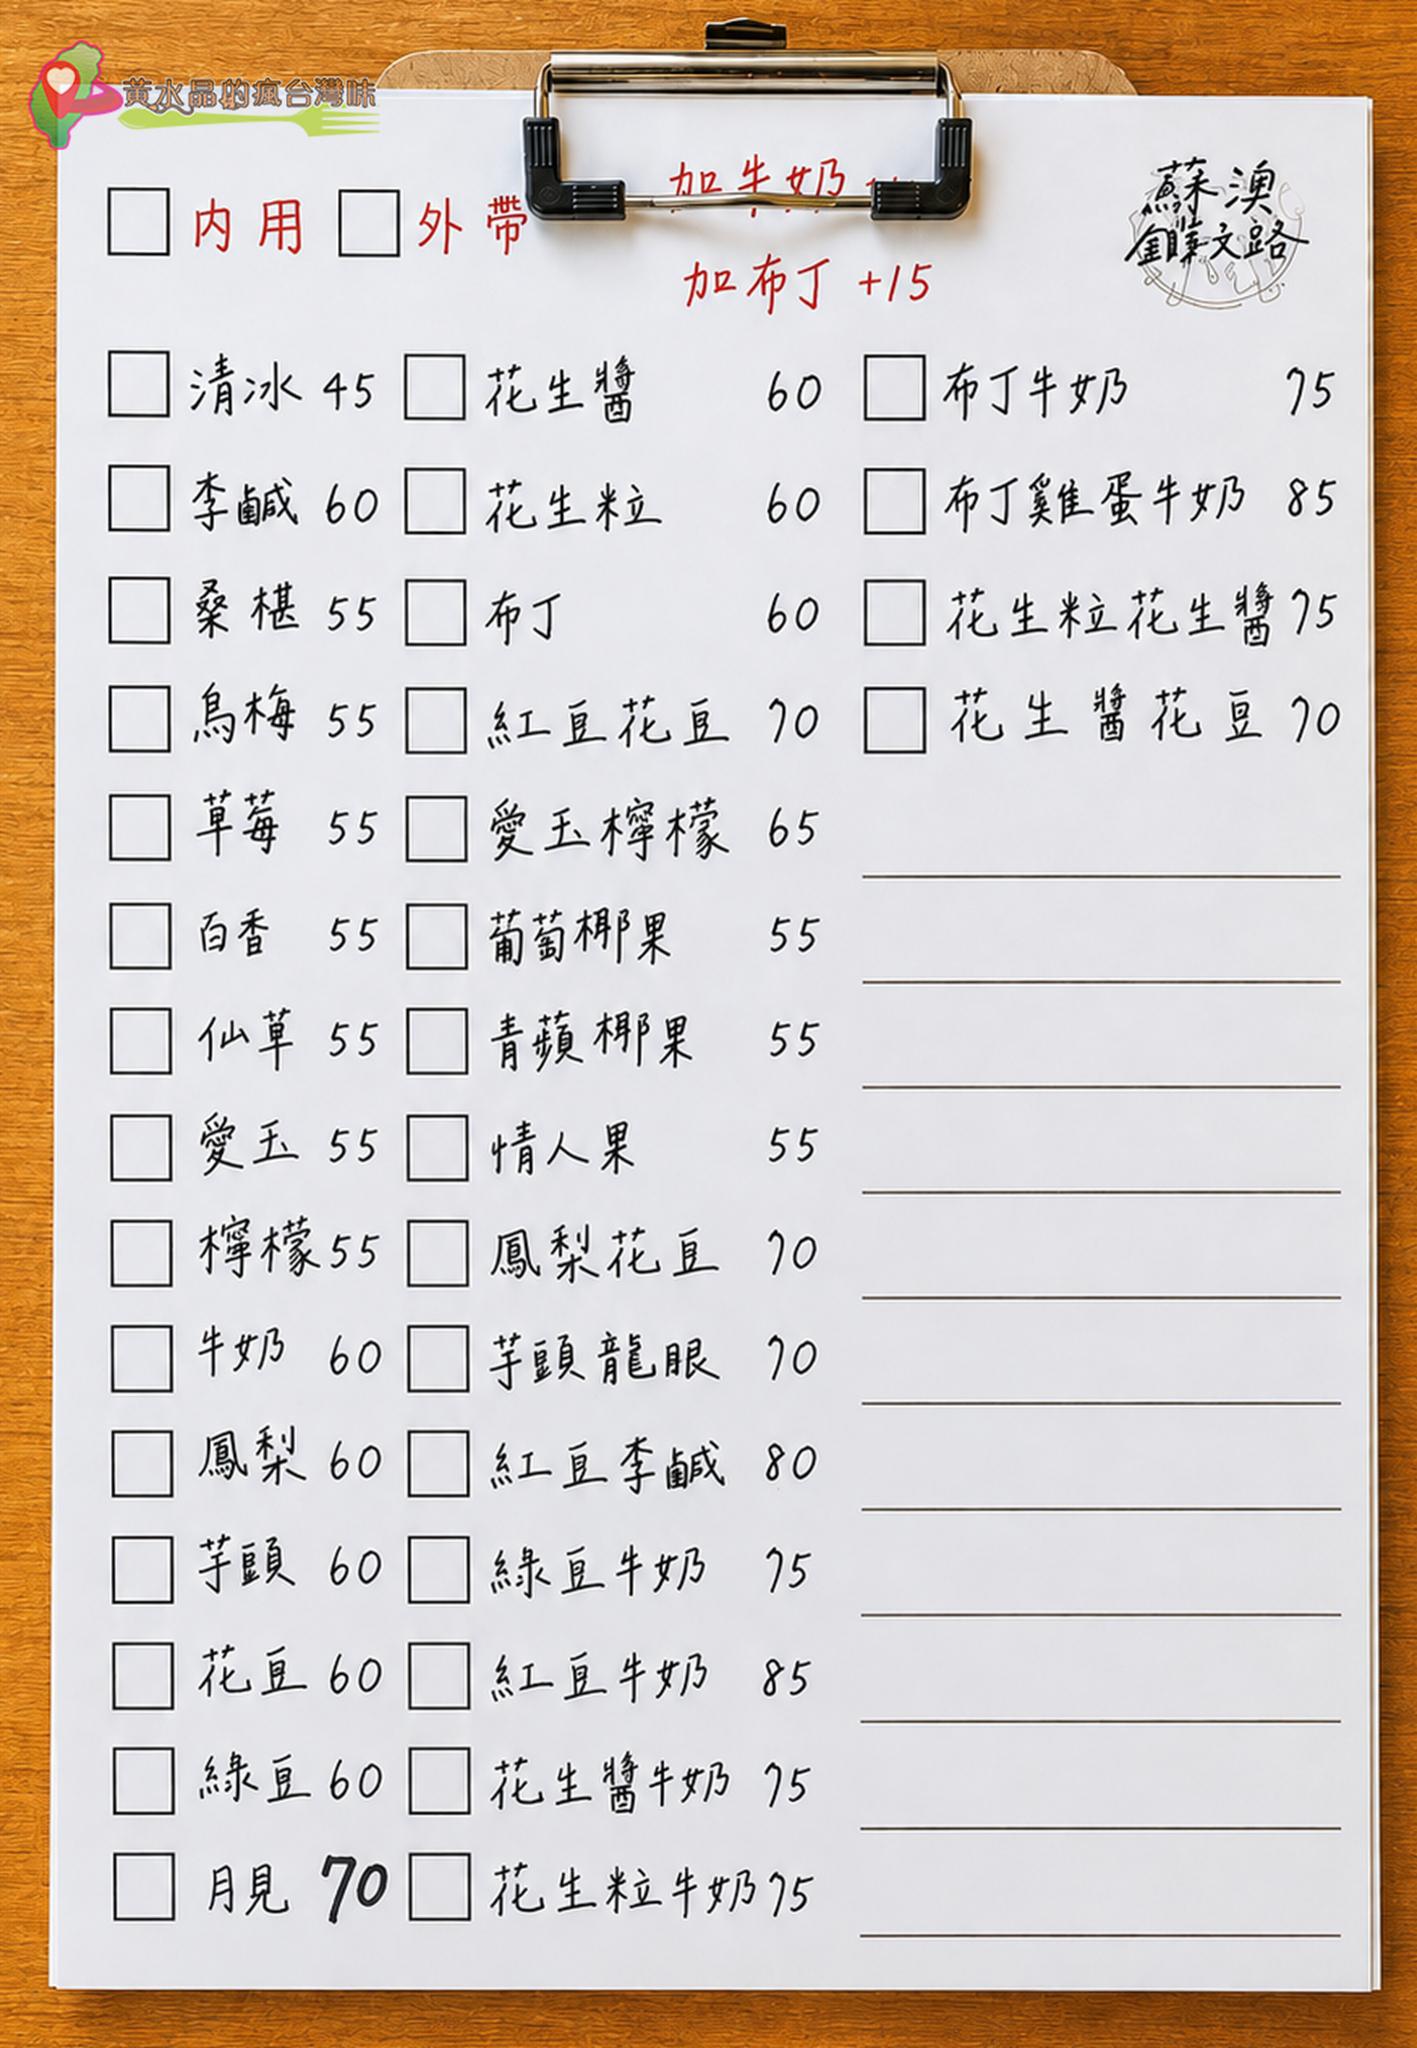 黃水晶的瘋台灣味
內用 外帶
加牛奶
加布丁 +15
蘇澳
文路
清冰 45
李鹹 60
桑椹 55
烏梅 55
草莓 55
百香 55
仙草 55
愛玉 55
檸檬 55
牛奶 60
鳳梨 60
芋頭 60
花豆 60
綠豆 60
月見 70
花生醬 60
花生粒 60
布丁 60
紅豆花豆 70
愛玉檸檬 65
葡萄椰果 55
青蘋椰果 55
情人果 55
鳳梨花豆 70
芋頭龍眼 70
紅豆李鹹 80
綠豆牛奶 75
紅豆牛奶 85
花生醬牛奶 75
花生粒牛奶 75
布丁牛奶 75
布丁雞蛋牛奶 85
花生粒花生醬 75
花生醬花豆 70